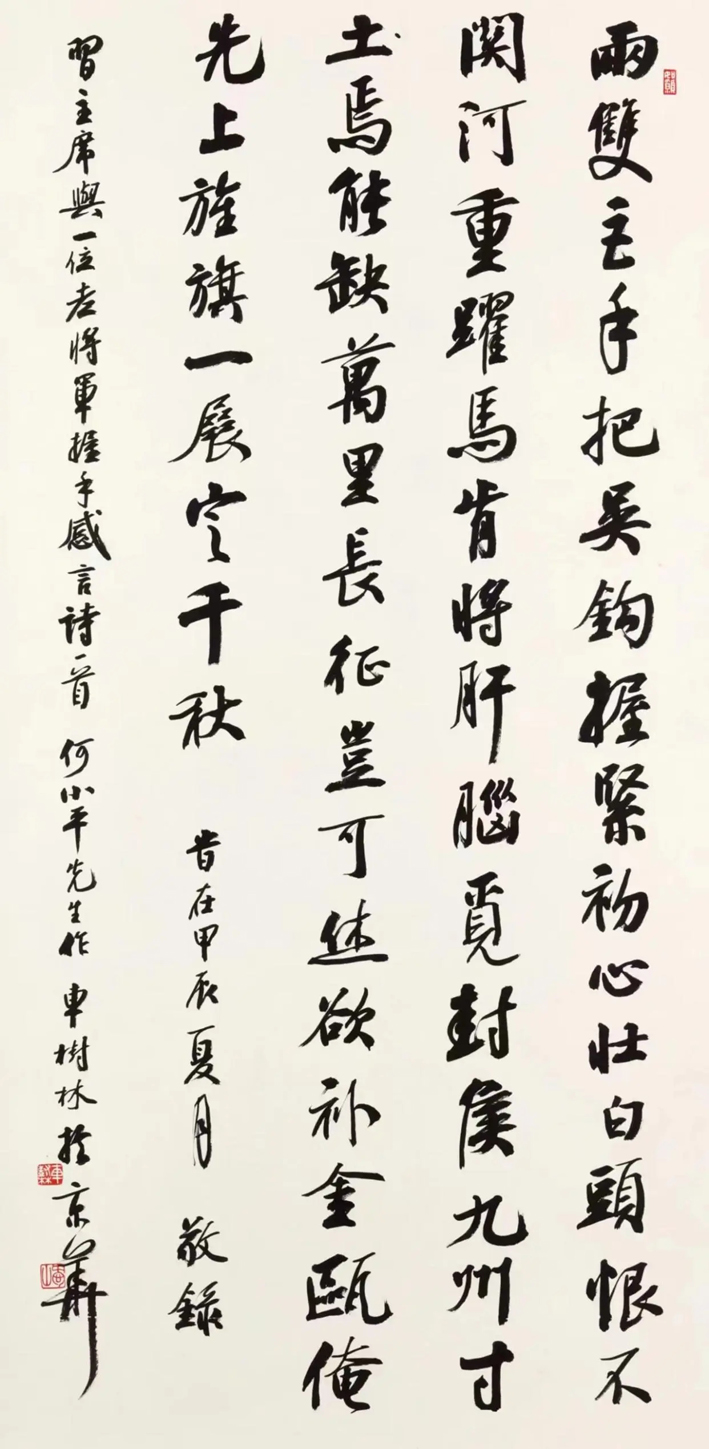 兩雙巨手把吳鈎握緊初心壯白頭恨不
関河重躍馬肯將肝腦覓封侯九州寸
土焉能缺萬里長征豈可休欲补金甌俺
先上旌旗一展定千秋 旹在甲辰夏月 敬錄
習主席與一位老將軍握手感言詩一首 何小平先生作 車樹林於京華